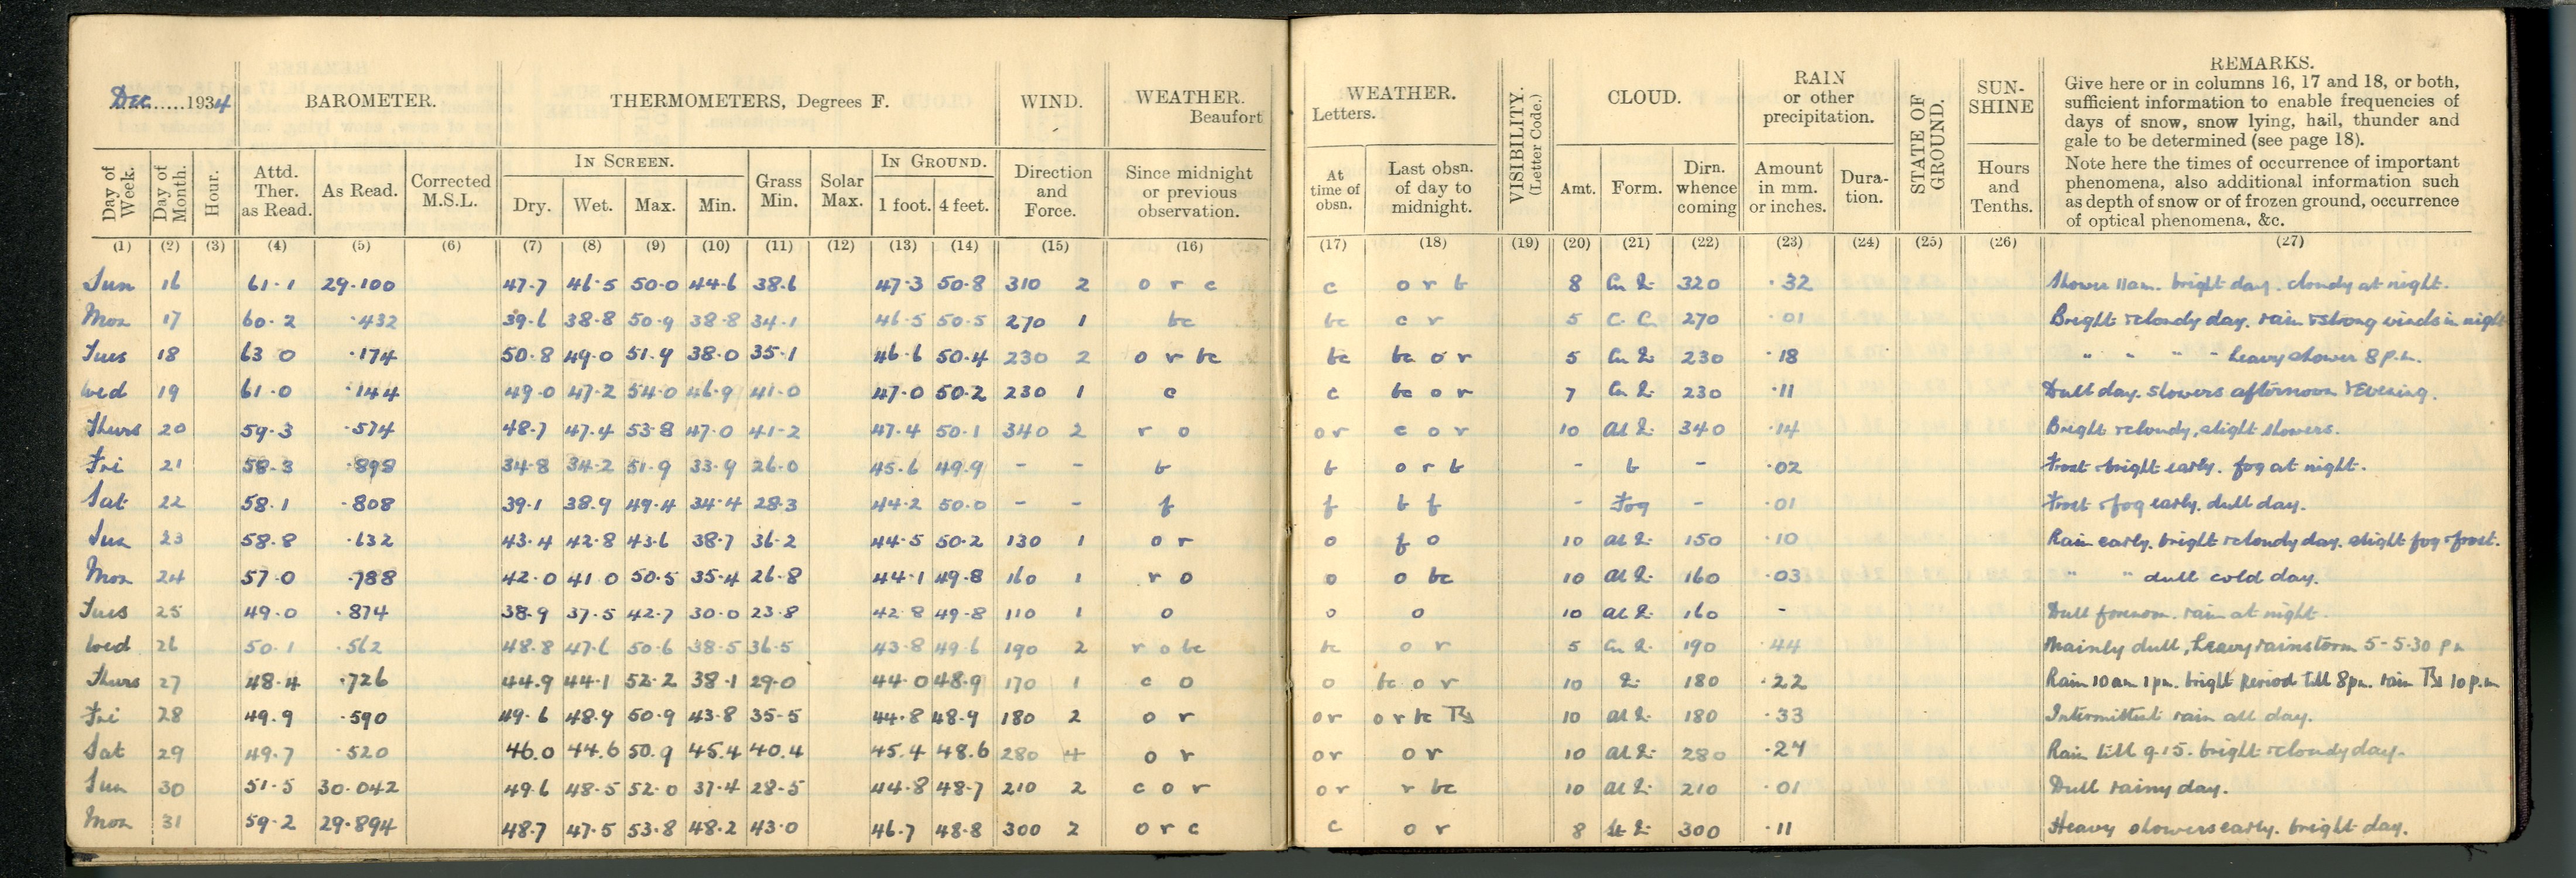 Dec......1934 BAROMETER. THERMOMETERS, Degrees F. WIND. WEATHER. Beaufort
Day of Week. Day of Month. Hour. Attd. Ther. as Read. As Read. Corrected M.S.L. IN SCREEN. Dry. Wet. Max. Min. Grass Min. Solar Max. IN GROUND. 1 foot. 4 feet. Direction and Force. Since midnight or previous observation.
(1) (2) (3) (4) (5) (6) (7) (8) (9) (10) (11) (12) (13) (14) (15) (16)
Sun 16 61.1 29.100 47.7 46.5 50.0 44.6 38.6 47.3 50.8 310 2 o r c
Mon 17 60.2 .432 39.6 38.8 50.9 38.8 34.1 46.5 50.5 270 1 bc
Tues 18 63 0 .174 50.8 49.0 51.9 38.0 35.1 46.6 50.4 230 2 o r bc
Wed 19 61.0 .144 49.0 47.2 54.0 46.9 41.0 47.0 50.2 230 1 c
Thurs 20 59.3 .574 48.7 47.4 53.8 47.0 41.2 47.4 50.1 340 2 r o
Fri 21 58.3 .898 34.8 34.2 51.9 33.9 26.0 45.6 49.9 - - b
Sat 22 58.1 .808 39.1 38.9 49.4 34.4 28.3 44.2 50.0 - - f
Sun 23 58.8 .632 43.4 42.8 43.6 38.7 36.2 44.5 50.2 130 1 o r
Mon 24 57.0 .788 42.0 41.0 50.5 35.4 26.8 44.1 49.8 160 1 r o
Tues 25 49.0 .874 38.9 37.5 42.7 30.0 23.8 42.8 49.8 110 1 o
Wed 26 50.1 .562 48.8 47.6 50.6 38.5 36.5 43.8 49.6 190 2 r o bc
Thurs 27 48.4 .726 44.9 44.1 52.2 38.1 29.0 44.0 48.9 170 1 c o
Fri 28 49.9 .590 49.6 48.9 50.9 43.8 35.5 44.8 48.9 180 2 o r
Sat 29 49.7 .520 46.0 44.6 50.9 45.4 40.4 45.4 48.6 280 4 o r
Sun 30 51.5 30.042 49.6 48.5 52.0 37.4 28.5 44.8 48.7 210 2 c o r
Mon 31 59.2 29.894 48.7 47.5 53.8 48.2 43.0 46.7 48.8 300 2 o r c
WEATHER. Letters. VISIBILITY. (Letter Code.) CLOUD. RAIN or other precipitation. STATE OF GROUND. SUN-SHINE REMARKS.
Give here or in columns 16, 17 and 18, or both,
sufficient information to enable frequencies of
days of snow, snow lying, hail, thunder and
gale to be determined (see page 18).
Note here the times of occurrence of important
phenomena, also additional information such
as depth of snow or of frozen ground, occurrence
of optical phenomena, &c.
At time of obsn. Last obsn. of day to midnight. Amt. Form. Dirn. whence coming Amount in mm. or inches. Dura-tion. Hours and Tenths.
(17) (18) (19) (20) (21) (22) (23) (24) (25) (26) (27)
c o r b 8 320 .32 Shower 11am. bright day. cloudy at night.
bc c r 5 270 .01 Bright & cloudy day. rain & strong winds in night
bc bc o r 5 230 .18 " " " " heavy shower 8 p.m.
c bc o r 7 230 .11 Dull day. Showers afternoon & Evening.
or c o r 10 340 .14 Bright & cloudy, slight showers.
b o r b - b - .02 Frost & bright early. fog at night.
f b f - Fog - .01 Frost & fog early. dull day.
o f o 10 150 .10 Rain early. bright & cloudy day. slight fog & frost.
o o bc 10 160 .03 " " dull cold day.
o o 10 160 - Dull forenoon. rain at night.
bc o r 5 190 .44 Mainly dull, heavy rainstorm 5-5.30 pm
o bc o r 10 180 .22 Rain 10 am 1 pm. bright period till 8pm. rain 10 p.m
or o r bc 10 180 .33 Intermittent rain all day.
or o r 10 280 .24 Rain till 9.15. bright & cloudy day.
or r bc 10 210 .01 Dull rainy day.
c o r 8 300 .11 Heavy showers early. bright day.